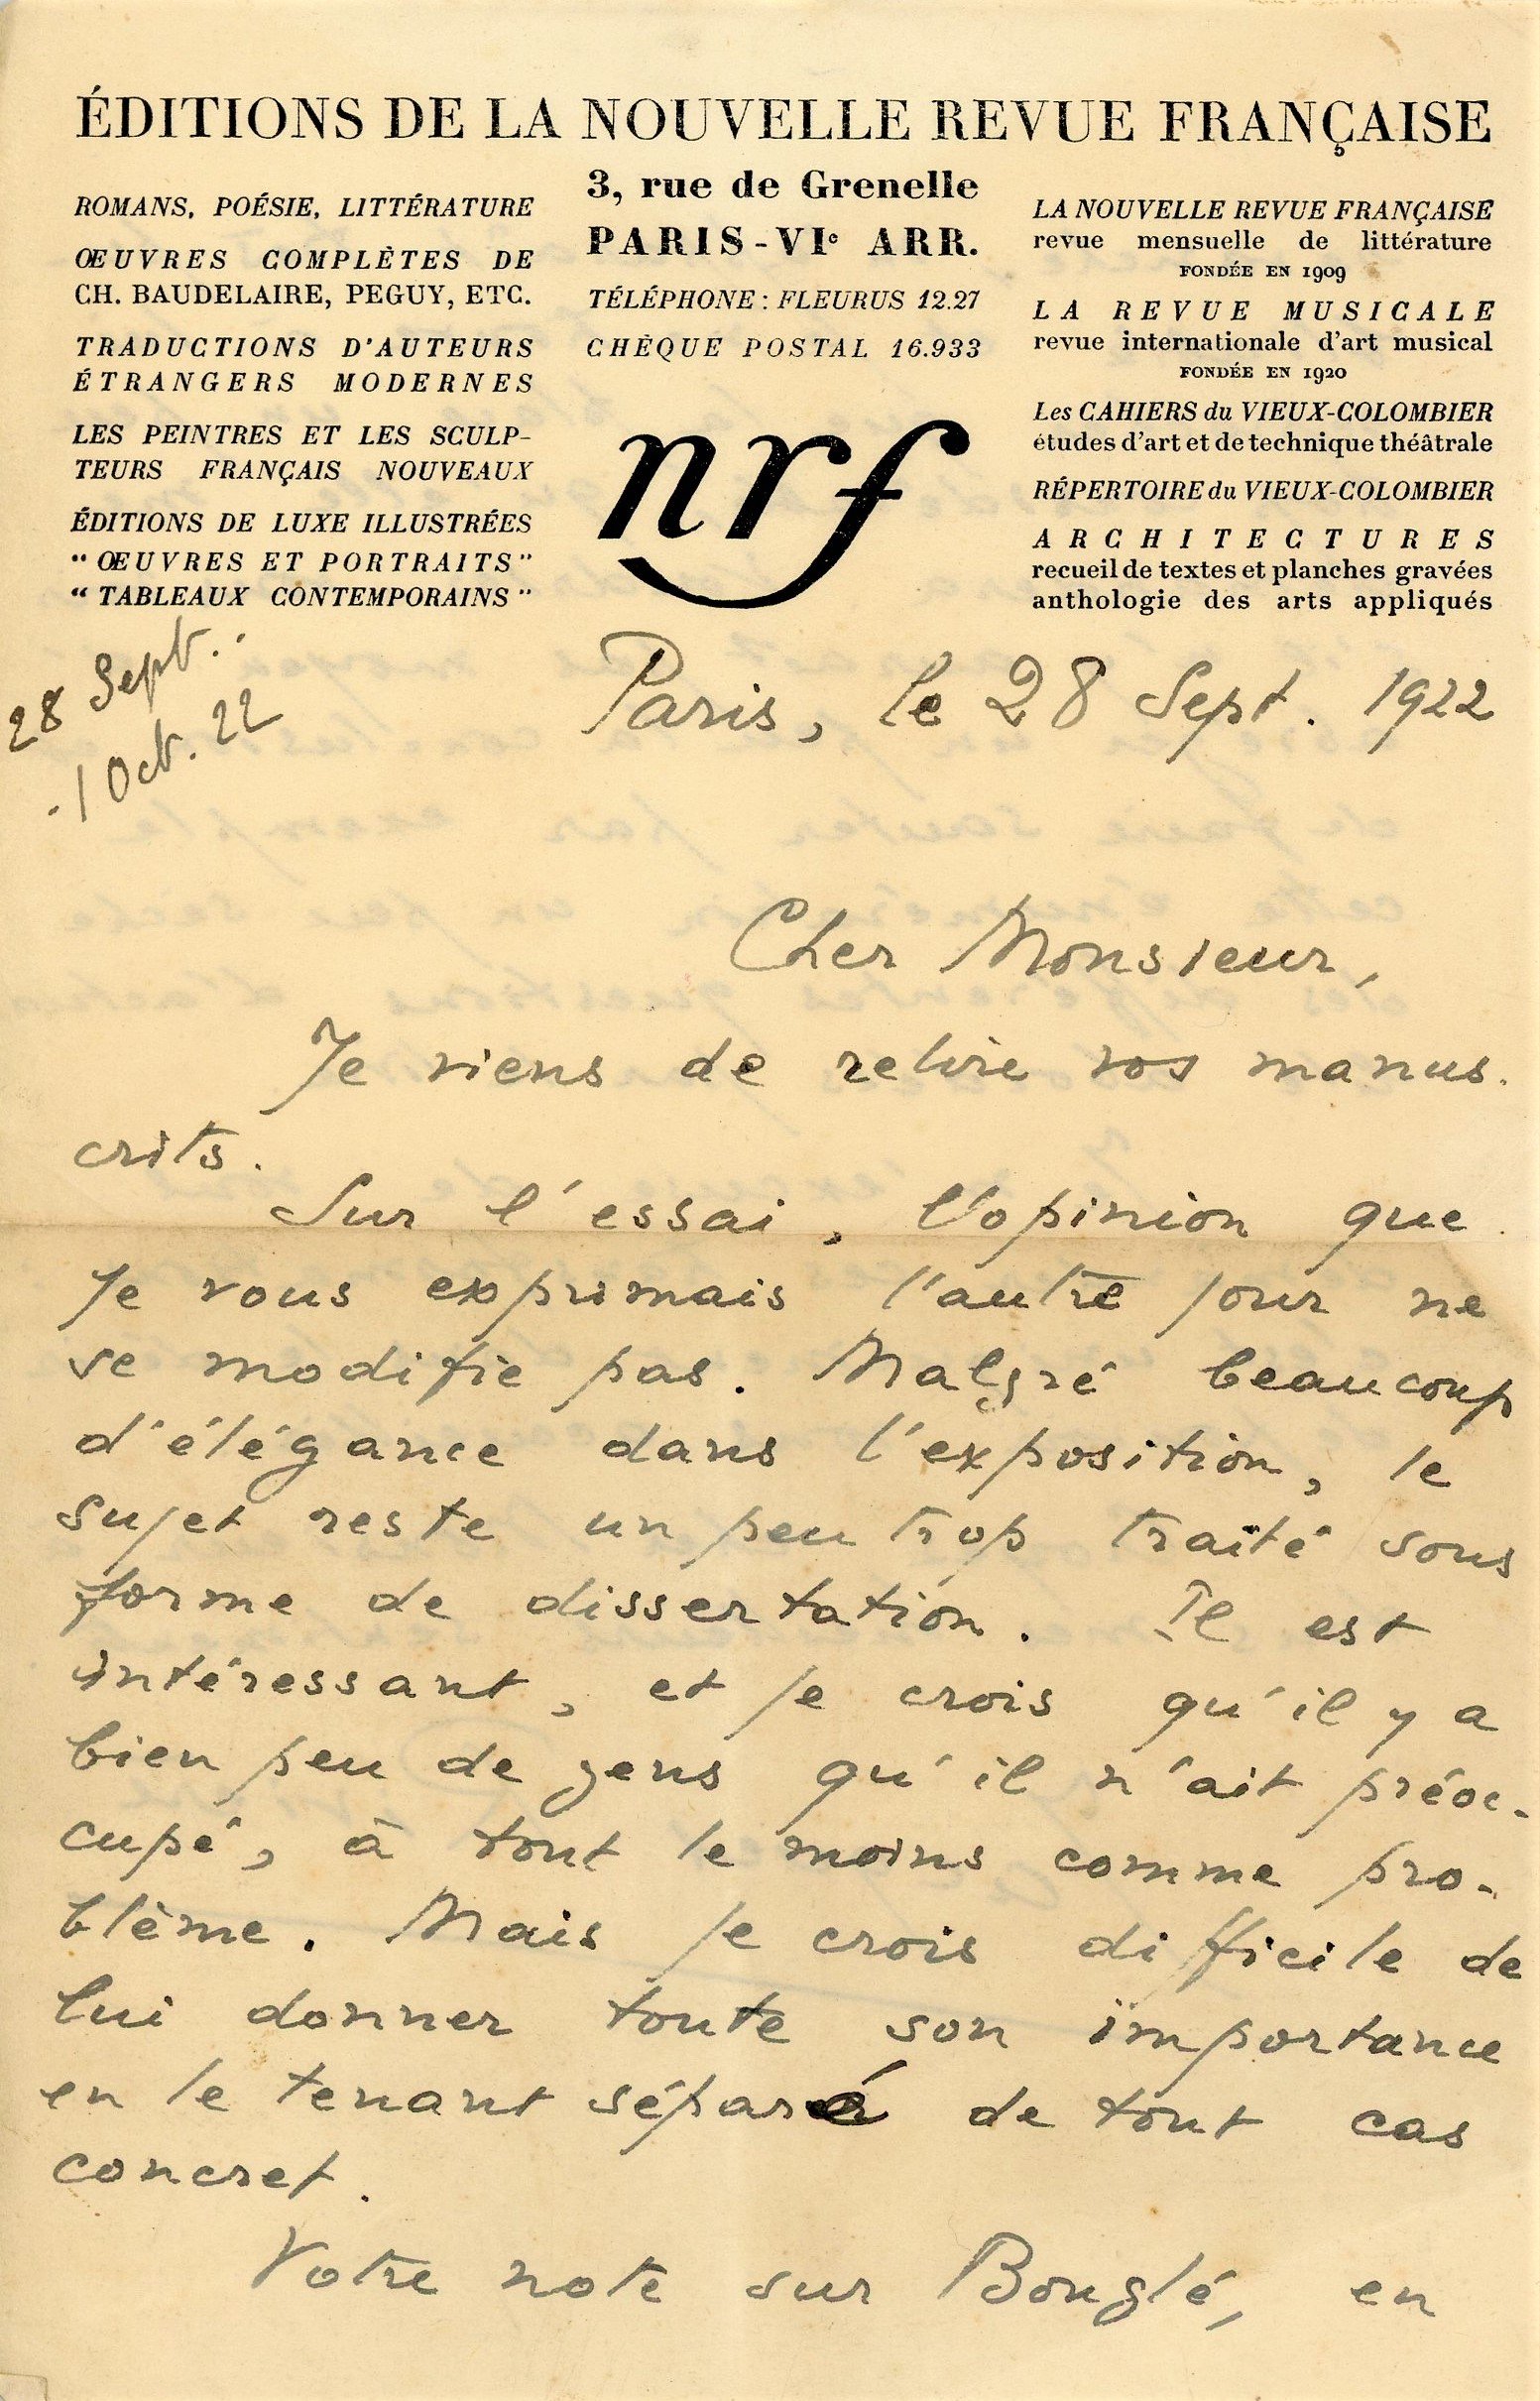 ÉDITIONS DE LA NOUVELLE REVUE FRANÇAISE
ROMANS, POÉSIE, LITTÉRATURE
ŒUVRES COMPLÈTES DE
CH. BAUDELAIRE, PEGUY, ETC.
TRADUCTIONS D'AUTEURS
ÉTRANGERS MODERNES
LES PEINTRES ET LES SCULP-
TEURS FRANÇAIS NOUVEAUX
ÉDITIONS DE LUXE ILLUSTRÉES
“ ŒUVRES ET PORTRAITS ”
“ TABLEAUX CONTEMPORAINS ”
3, rue de Grenelle
PARIS-VIe ARR.
TÉLÉPHONE : FLEURUS 12.27
CHÈQUE POSTAL 16.933
nrf
LA NOUVELLE REVUE FRANÇAISE
revue mensuelle de littérature
FONDÉE EN 1909
LA REVUE MUSICALE
revue internationale d'art musical
FONDÉE EN 1920
Les CAHIERS du VIEUX-COLOMBIER
études d'art et de technique théâtrale
RÉPERTOIRE du VIEUX-COLOMBIER
ARCHITECTURES
recueil de textes et planches gravées
anthologie des arts appliqués
28 Sept..
.1 Oct. 22
Paris, le 28 Sept. 1922
Cher Monsieur,
Je viens de relire vos manus-
crits.
Sur l'essai, l'opinion que
je vous exprimais l'autre jour ne
se modifie pas. Malgré beaucoup
d'élégance dans l'exposition, le
sujet reste un peu trop traité sous
forme de dissertation. Il est
intéressant, et je crois qu'il y a
bien peu de gens qu'il n'ait préoc-
cupé, à tout le moins comme pro-
blème. Mais je crois difficile de
lui donner toute son importance
en le tenant séparé de tout cas
concret.
Votre note sur Bouglé, en